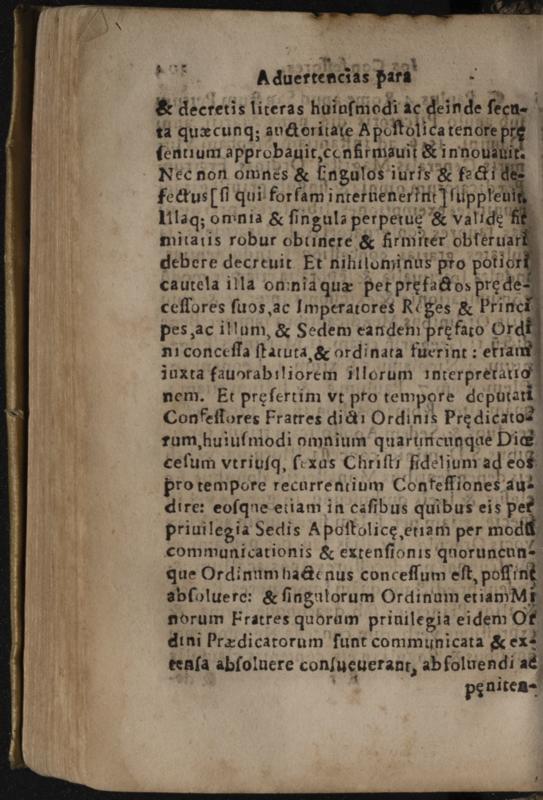 Aduertencias para
& decretis literas huiusmodi ac deinde secu-
ta quæcunq; auctoritate Apostolica tenore prę
sentium approbauit, confirmauit & innouauit.
Nec non omnes & singulos iuris & facti de-
fectus [si qui forsam interuenerint] suppleuit.
Illaq; omnia & singula perpetuę & validę fir
mitatis robur obtinere & firmiter obseruari
debere decreuit. Et nihilominus pro potiori
cautela illa omnia quæ per pręfactos pręde-
cessores suos, ac Imperatores Reges & Princi
pes, ac illum, & Sedem eandem pręfato Ordi
ni concessa statuta, & ordinata fuerint: etiam
iuxta fauorabiliorem illorum interpretatio
nem. Et pręsertim vt pro tempore deputati
Confessores Fratres dicti Ordinis Prędicato-
rum, huiusmodi omnium quaruncunque Diœ
cesum vtriusq, sexus Christi fidelium ad eos
pro tempore recurrentium Confessiones au-
dire: eosque etiam in casibus quibus eis per
priuilegia Sedis Apostolicę, etiam per modū
communicationis & extensionis quoruncun-
que Ordinum hactenus concessum est, possint
absoluere: & singulorum Ordinum etiam Mi
norum Fratres quorum priuilegia eidem Or
dini Prædicatorum sunt communicata & ex-
tensa absoluere consueuerant, absoluendi ac
pęniten-